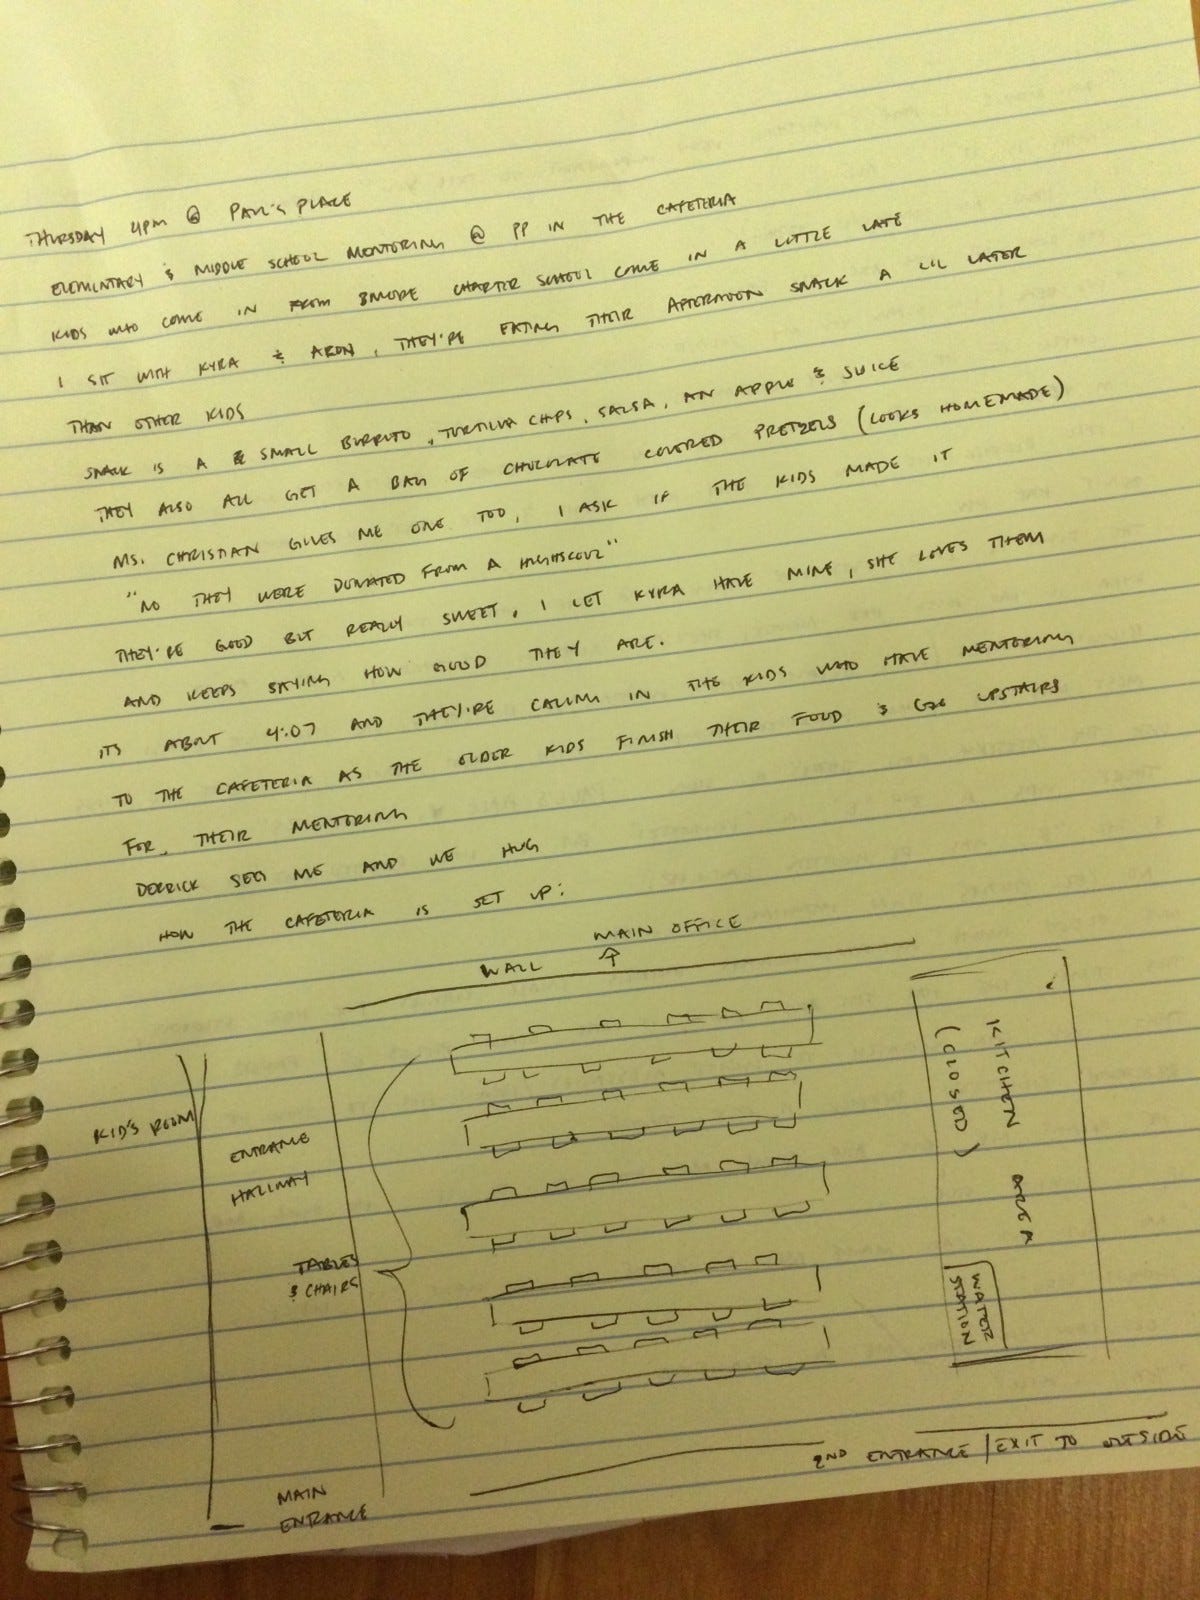 THURSDAY 4PM @ PAUL'S PLACE
ELEMENTARY & MIDDLE SCHOOL MENTORING @ PP IN THE CAFETERIA
KIDS WHO COME IN FROM BMORE CHARTER SCHOOL COME IN A LITTLE LATE
I SIT WITH KYRA & ARON, THEY'RE EATING THEIR AFTERNOON SNACK A LIL LATER
THAN OTHER KIDS
SNACK IS A SMALL BURRITO, TORTILLA CHIPS, SALSA, AN APPLE & JUICE
THEY ALSO ALL GET A BAG OF CHOCOLATE COVERED PRETZELS (LOOKS HOMEMADE)
MS. CHRISTIAN GIVES ME ONE TOO, I ASK IF THE KIDS MADE IT
"NO THEY WERE DONATED FROM A HIGHSCOOL"
THEY'RE GOOD BUT REALLY SWEET, I LET KYRA HAVE MINE, SHE LOVES THEM
AND KEEPS SAYING HOW GOOD THEY ARE.
ITS ABOUT 4:07 AND THEY'RE CALLING IN THE KIDS WHO HAVE MENTORING
TO THE CAFETERIA AS THE OLDER KIDS FINISH THEIR FOOD & GO UPSTAIRS
FOR THEIR MENTORING
DERRICK SEES ME AND WE HUG
HOW THE CAFETERIA IS SET UP:
MAIN OFFICE
WALL
KITCHEN AREA
(CLOSED)
KID'S ROOM
ENTRANCE
HALLWAY
TABLES
& CHAIRS
WATER
STATION
2ND ENTRANCE/EXIT TO OUTSIDE
MAIN
ENTRANCE